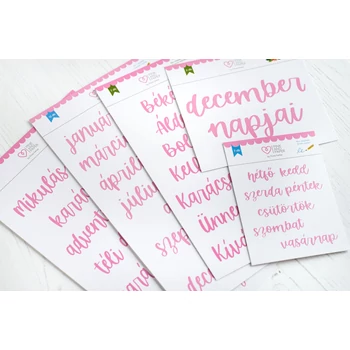 mikulás
kará
advent
téli
január
márciu
április
júliu
szep
decembe
Béké
Áldo
Bol
Kell
Karács
Ünne
Kívá
december
napjai
hétfő kedd
szerda péntek
csütörtök
szombat
vasárnap